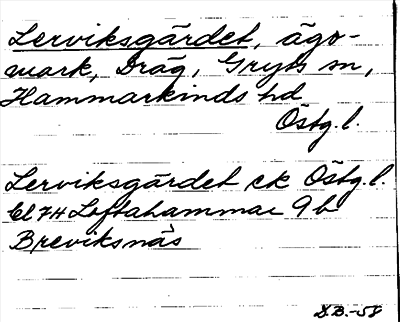 Lerviksgärdet, ägo-
mark, Dräg, Gryts sn,
Hammarkinds hd
Östg. l.
Lerviksgärdet ek Östg. l.
Bl 74 Loftahammar 9b
Breviksnäs
S.B.-58